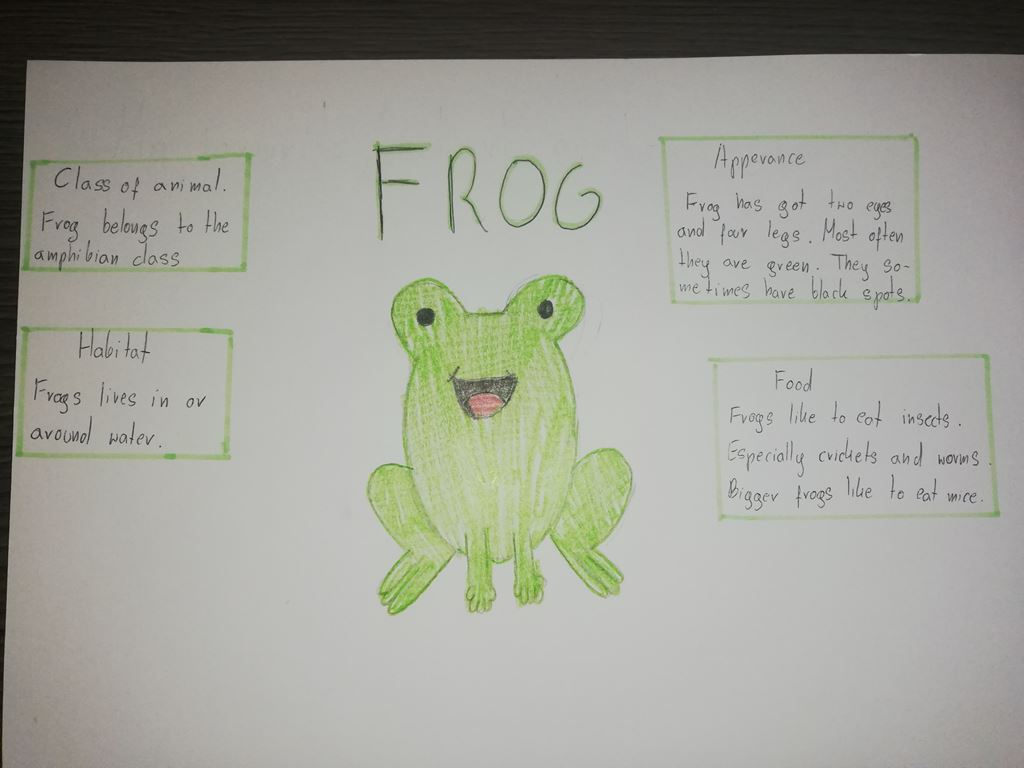 FROG
Class of animal.
Frog belongs to the
amphibian class
Habitat
Frogs lives in or
around water.
Apperance
Frog has got two eyes
and four legs. Most often
they are green. They so-
metimes have black spots.
Food
Frogs like to eat insects.
Especially crickets and worms.
Bigger frogs like to eat mice.